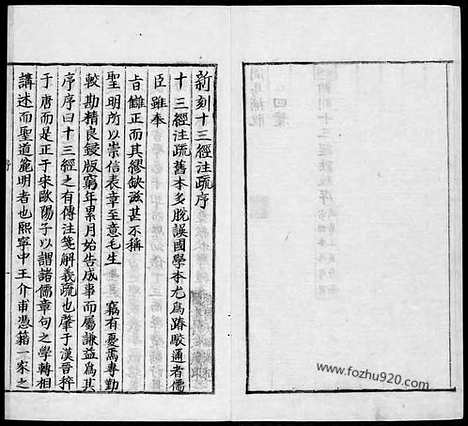 新刻十三經注疏序
十三經注疏舊本多脫誤國學本尤為踳駁通者儒
臣雖奉
旨讎正而其繆缺滋甚不稱
聖明所以崇信表章至意毛生
竊有憂焉專勤
較勘精良鋟版窮年累月始告成事而屬謙益為其
序序曰十三經之有傳注箋解義疏也肇于漢晉粹
于唐而是正于宋歐陽子以謂諸儒章句之學轉相
講述而聖道麄明者也熙寧中王介甫憑藉一家之
www.fozhu920.com